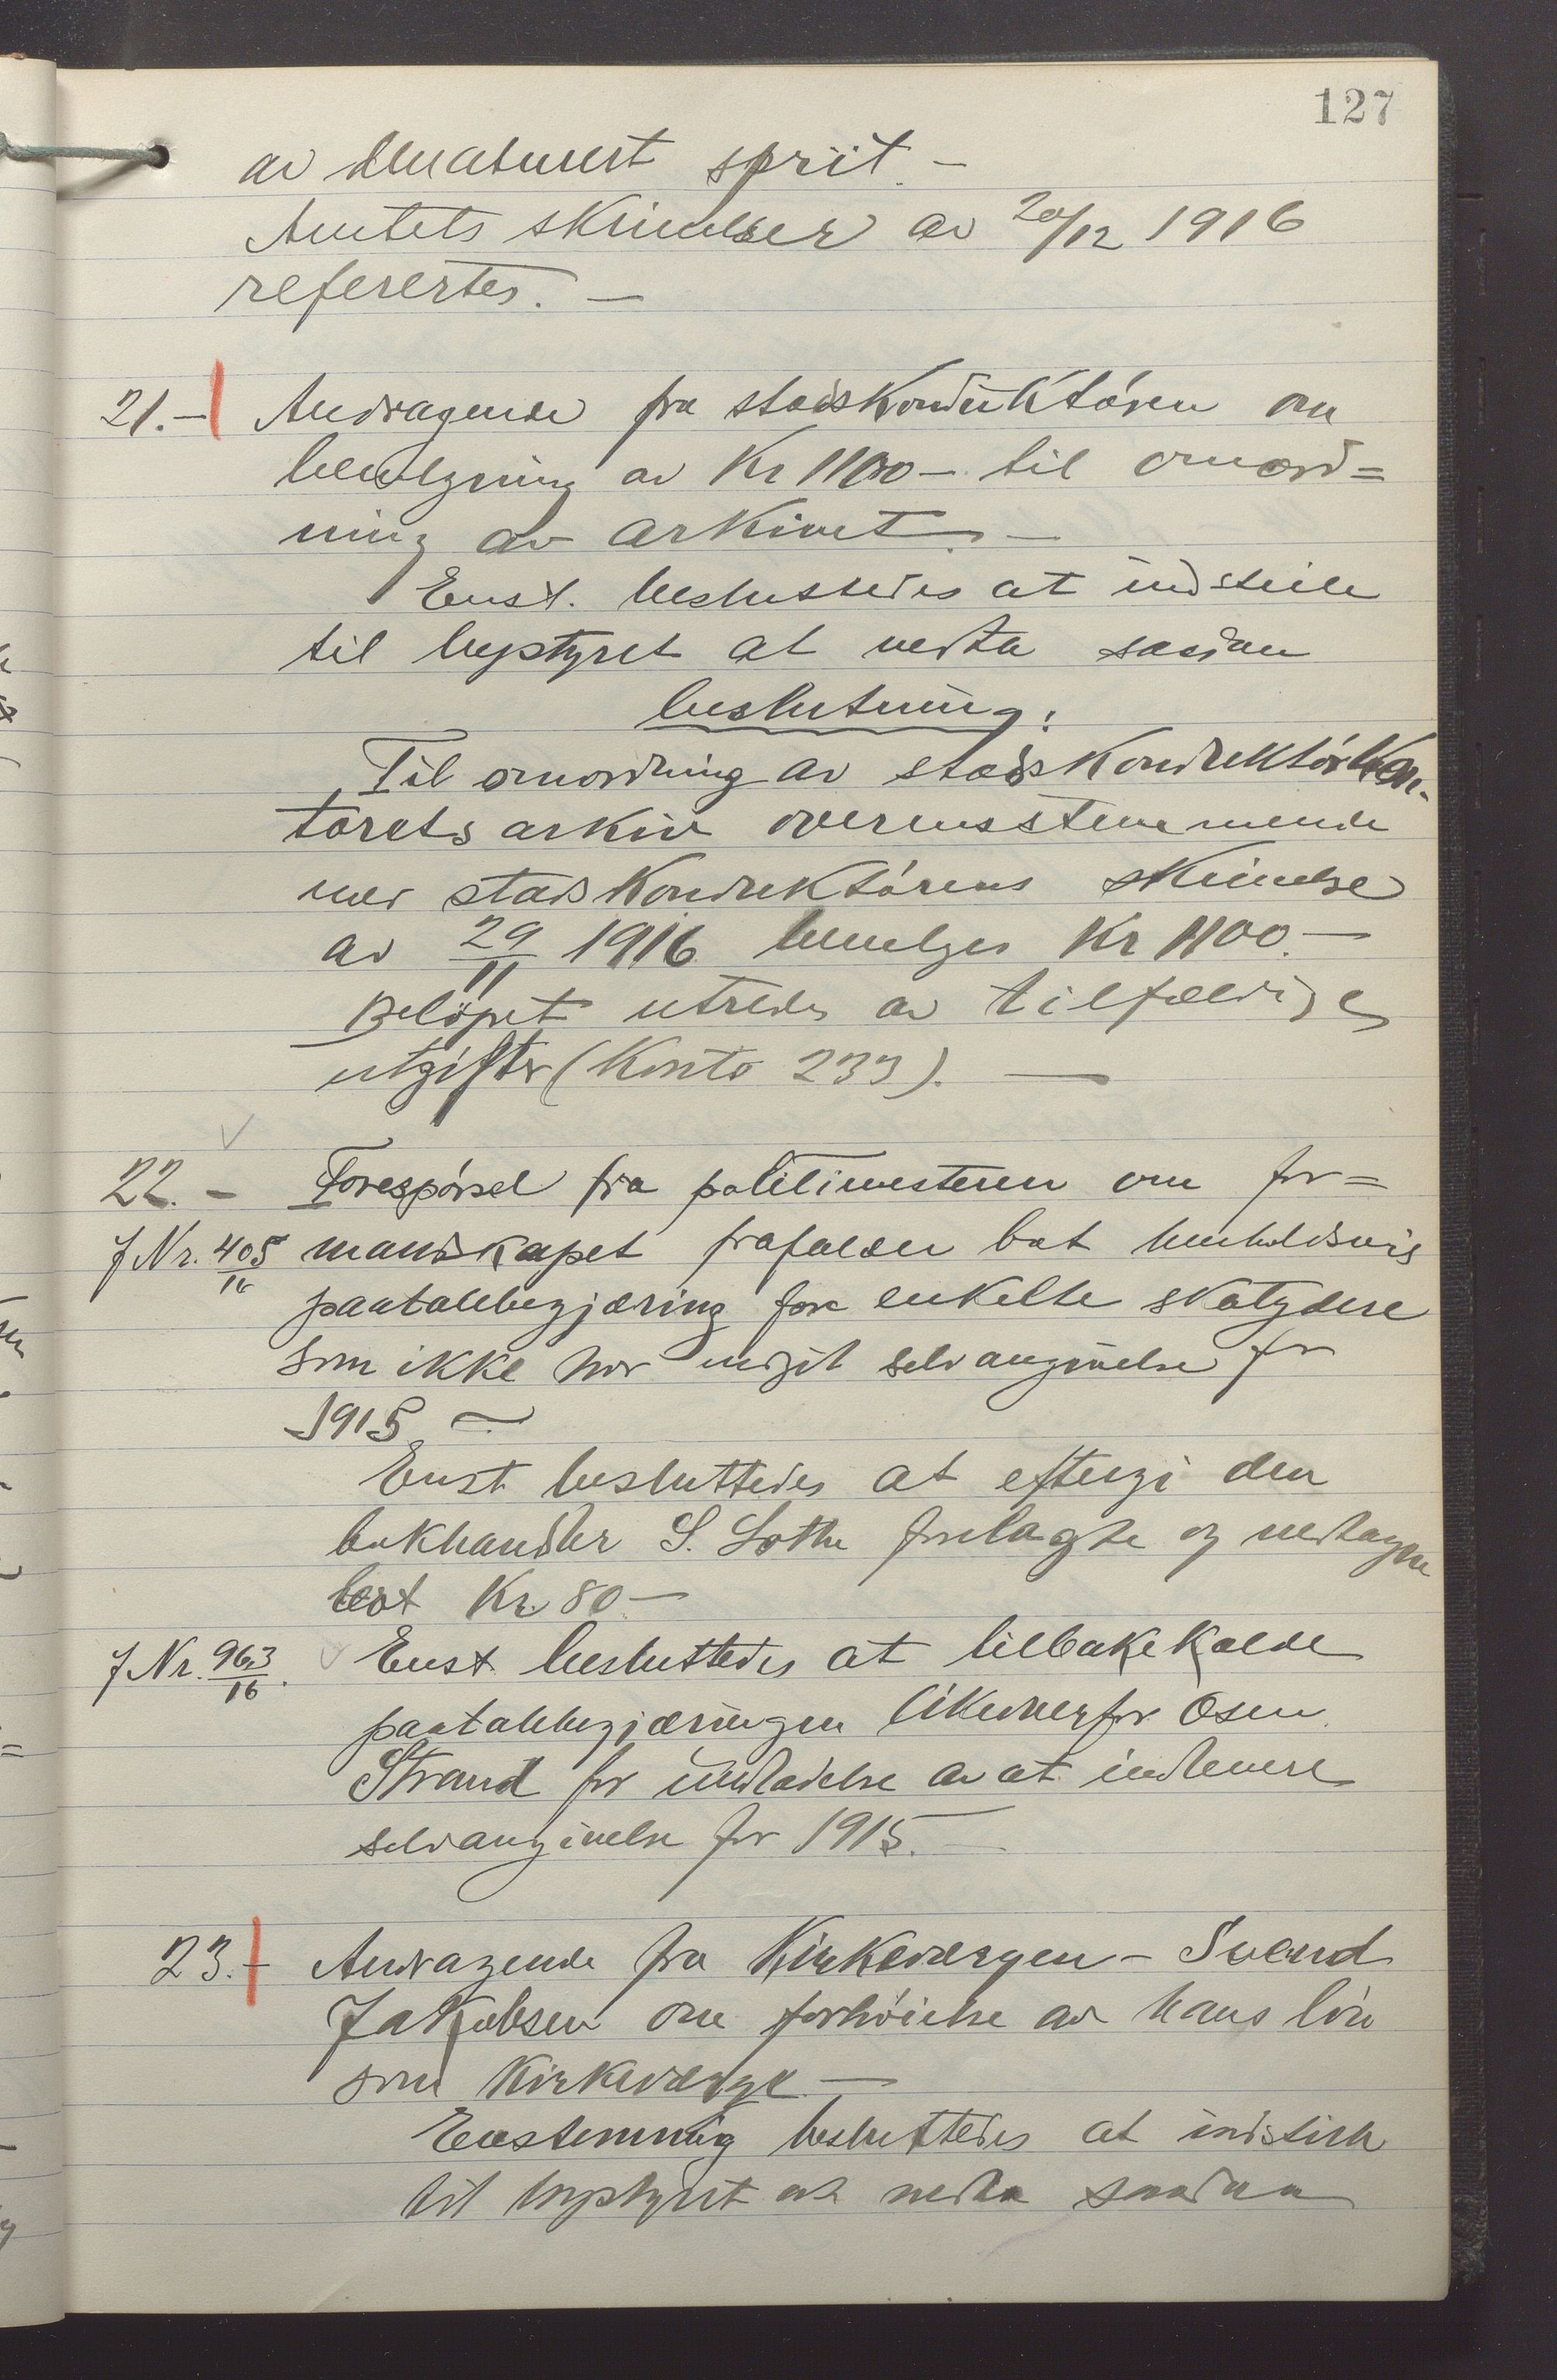 127
av denaturert sprit. –
Amtets skrivelser av 20/12 1916
refereres. –
21. – Andragende fra stadskonduktören om
bevilgning av Kr 1100 – til omord=
ning av arkivet. –
Enst. besluttedes at indstille
til bystyret at vedta saadan
beslutning:
Til omordning av stadskonduktörkon-
torets arkiv overensstemmende
med stadskonduktörens skrivelse
av 29/11 1916 bevilges Kr 1100. –
Belöpet utredes av tilfældige
utgifter (Konto 233). –
22. – Forespörsel fra politimesteren om for=
J Nr. 405/16 mandskapet frafalder bot henholdsvis
paatalebegjæring for enkelte skatydere
som ikke har indgit selvangivelse for
1915. –
Enst. besluttedes at eftergi den
bokhandler S. Lothe forelagte og vedtagne
bot Kr. 80 –
J Nr. 963/16. Enst. besluttedes at tilbakekalde
paatalebegjæringen likeoverfor Osm.
Strand for undladelse av at indlevere
selvangivelse for 1915. –
23. – Andragende fra Kirkeværgen – Svend
Jakobsen om forhöielse av hans lön
som Kirkeværge. –
Enstemmig besluttedes at indstille
til bystyret at vedta saadan